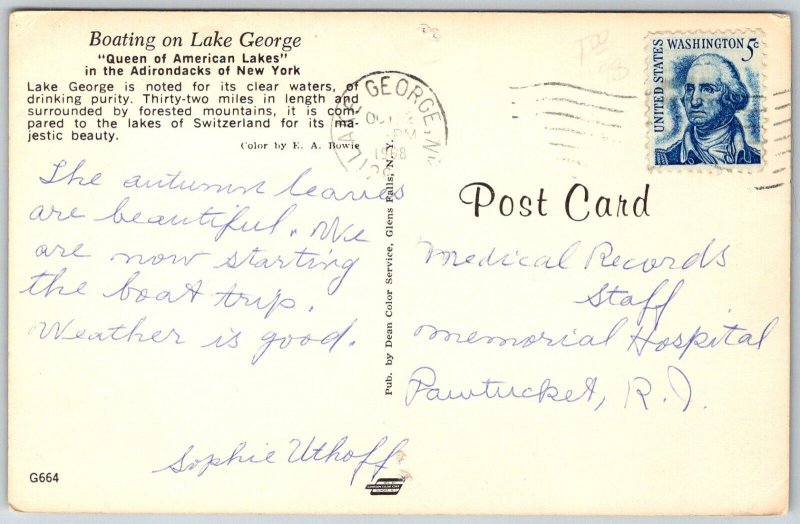 Boating on Lake George
"Queen of American Lakes"
in the Adirondacks of New York
Lake George is noted for its clear waters, of
drinking purity. Thirty-two miles in length and
surrounded by forested mountains, it is com-
pared to the lakes of Switzerland for its ma-
jestic beauty.
Color by E. A. Bowie
The autumn leaves
are beautiful. We
are now starting
the boat trip.
Weather is good.
Sophie Uthoff
G664
Pub. by Dean Color Service, Glens Falls, N. Y.
LAKE GEORGE, N
OCT
PM
1968
UNITED STATES
WASHINGTON 5c
Post Card
Medical Records
Staff
Memorial Hospital
Pawtucket, R.I.